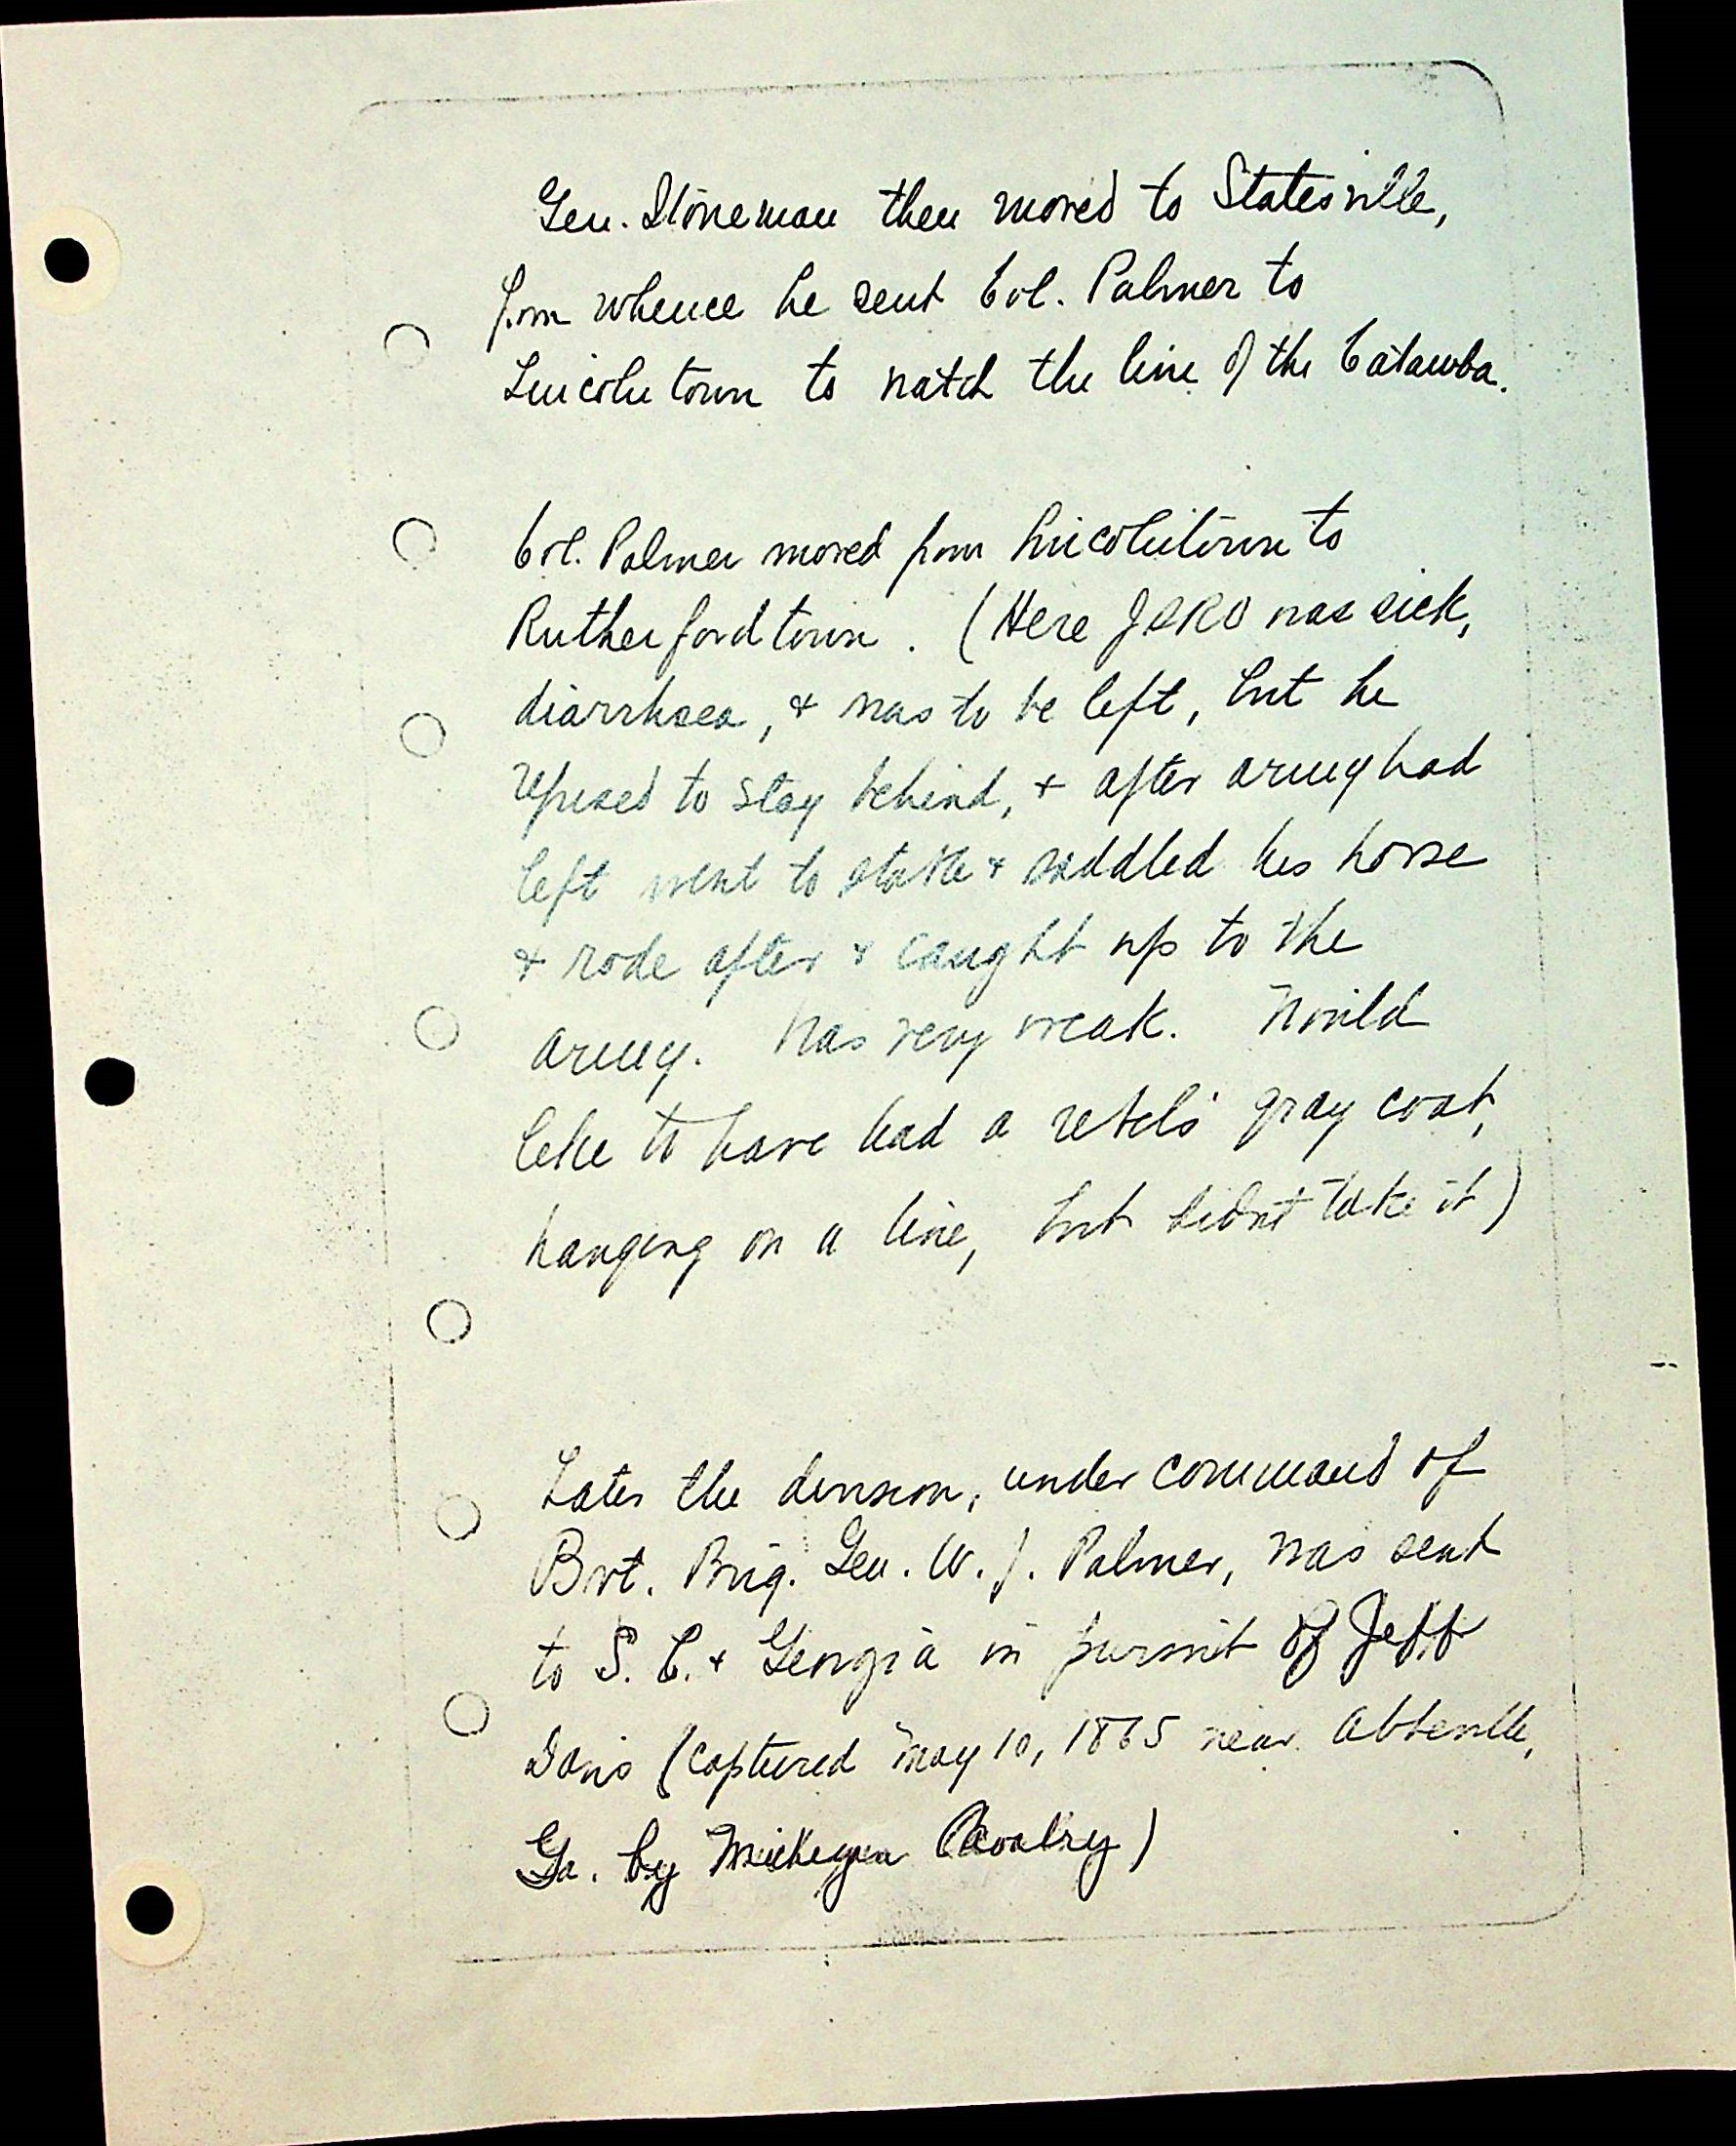 Gen. Stoneman then moved to Statesville,
from whence he sent Col. Palmer to
Lincolntown to watch the line of the Catawba.
Col. Palmer moved from Lincolntown to
Rutherfordtown. (Here JSRO was sick,
diarrhoea, & was to be left, but he
refused to stay behind, + after army had
left went to stable + saddled his horse
+ rode after + caught up to the
army. Was very weak. Would
like to have had a rebel's gray coat,
hanging on a line, but didnt take it)
Later the division, under command of
Bvt. Brig. Gen. W. J. Palmer, was sent
to S. C. + Georgia in pursuit of Jeff
Davis (captured May 10, 1865 near Abbeville,
Ga. by Michigan Cavalry)